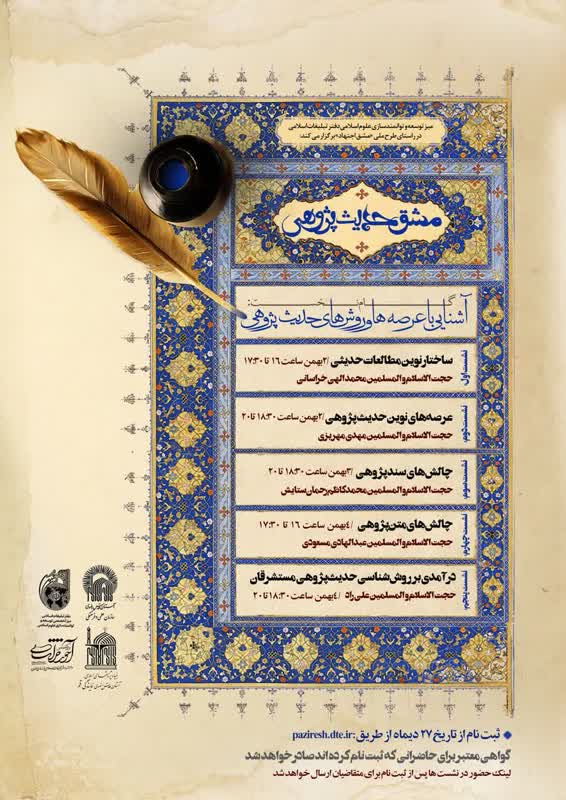 میز توسعه و توانمندسازی علوم اسلامی دفتر تبلیغات اسلامی
در راستای طرح ملی «مشق اجتهاد» برگزار می کند:
مشق حدیث پژوهی
گام نخست:
آشنایی با عرصه ها و روش های حدیث پژوهی
نشست اول
ساختار نوین مطالعات حدیثی /۲بهمن ساعت ۱۶ تا ۱۷:۳۰
حجت الاسلام والمسلمین محمد الهی خراسانی
نشست دوم
عرصه های نوین حدیث پژوهی /۲بهمن ساعت ۱۸:۳۰ تا ۲۰
حجت الاسلام والمسلمین مهدی مهریزی
نشست سوم
چالش های سندپژوهی /۳بهمن ساعت ۱۸:۳۰ تا ۲۰
حجت الاسلام والمسلمین محمدکاظم رحمان ستایش
نشست چهارم
چالش های متن پژوهی /۴بهمن ساعت ۱۶ تا ۱۷:۳۰
حجت الاسلام والمسلمین عبدالهادی مسعودی
نشست پنجم
درآمدی بر روش شناسی حدیث پژوهی مستشرقان
حجت الاسلام والمسلمین علی راد /۴بهمن ساعت ۱۸:۳۰ تا ۲۰
ثبت نام از تاریخ ۲۷ دیماه از طریق: paziresh.dte.ir
گواهی معتبر برای حاضرانی که ثبت نام کرده اند صادر خواهد شد
لینک حضور در نشست ها پس از ثبت نام برای متقاضیان ارسال خواهد شد